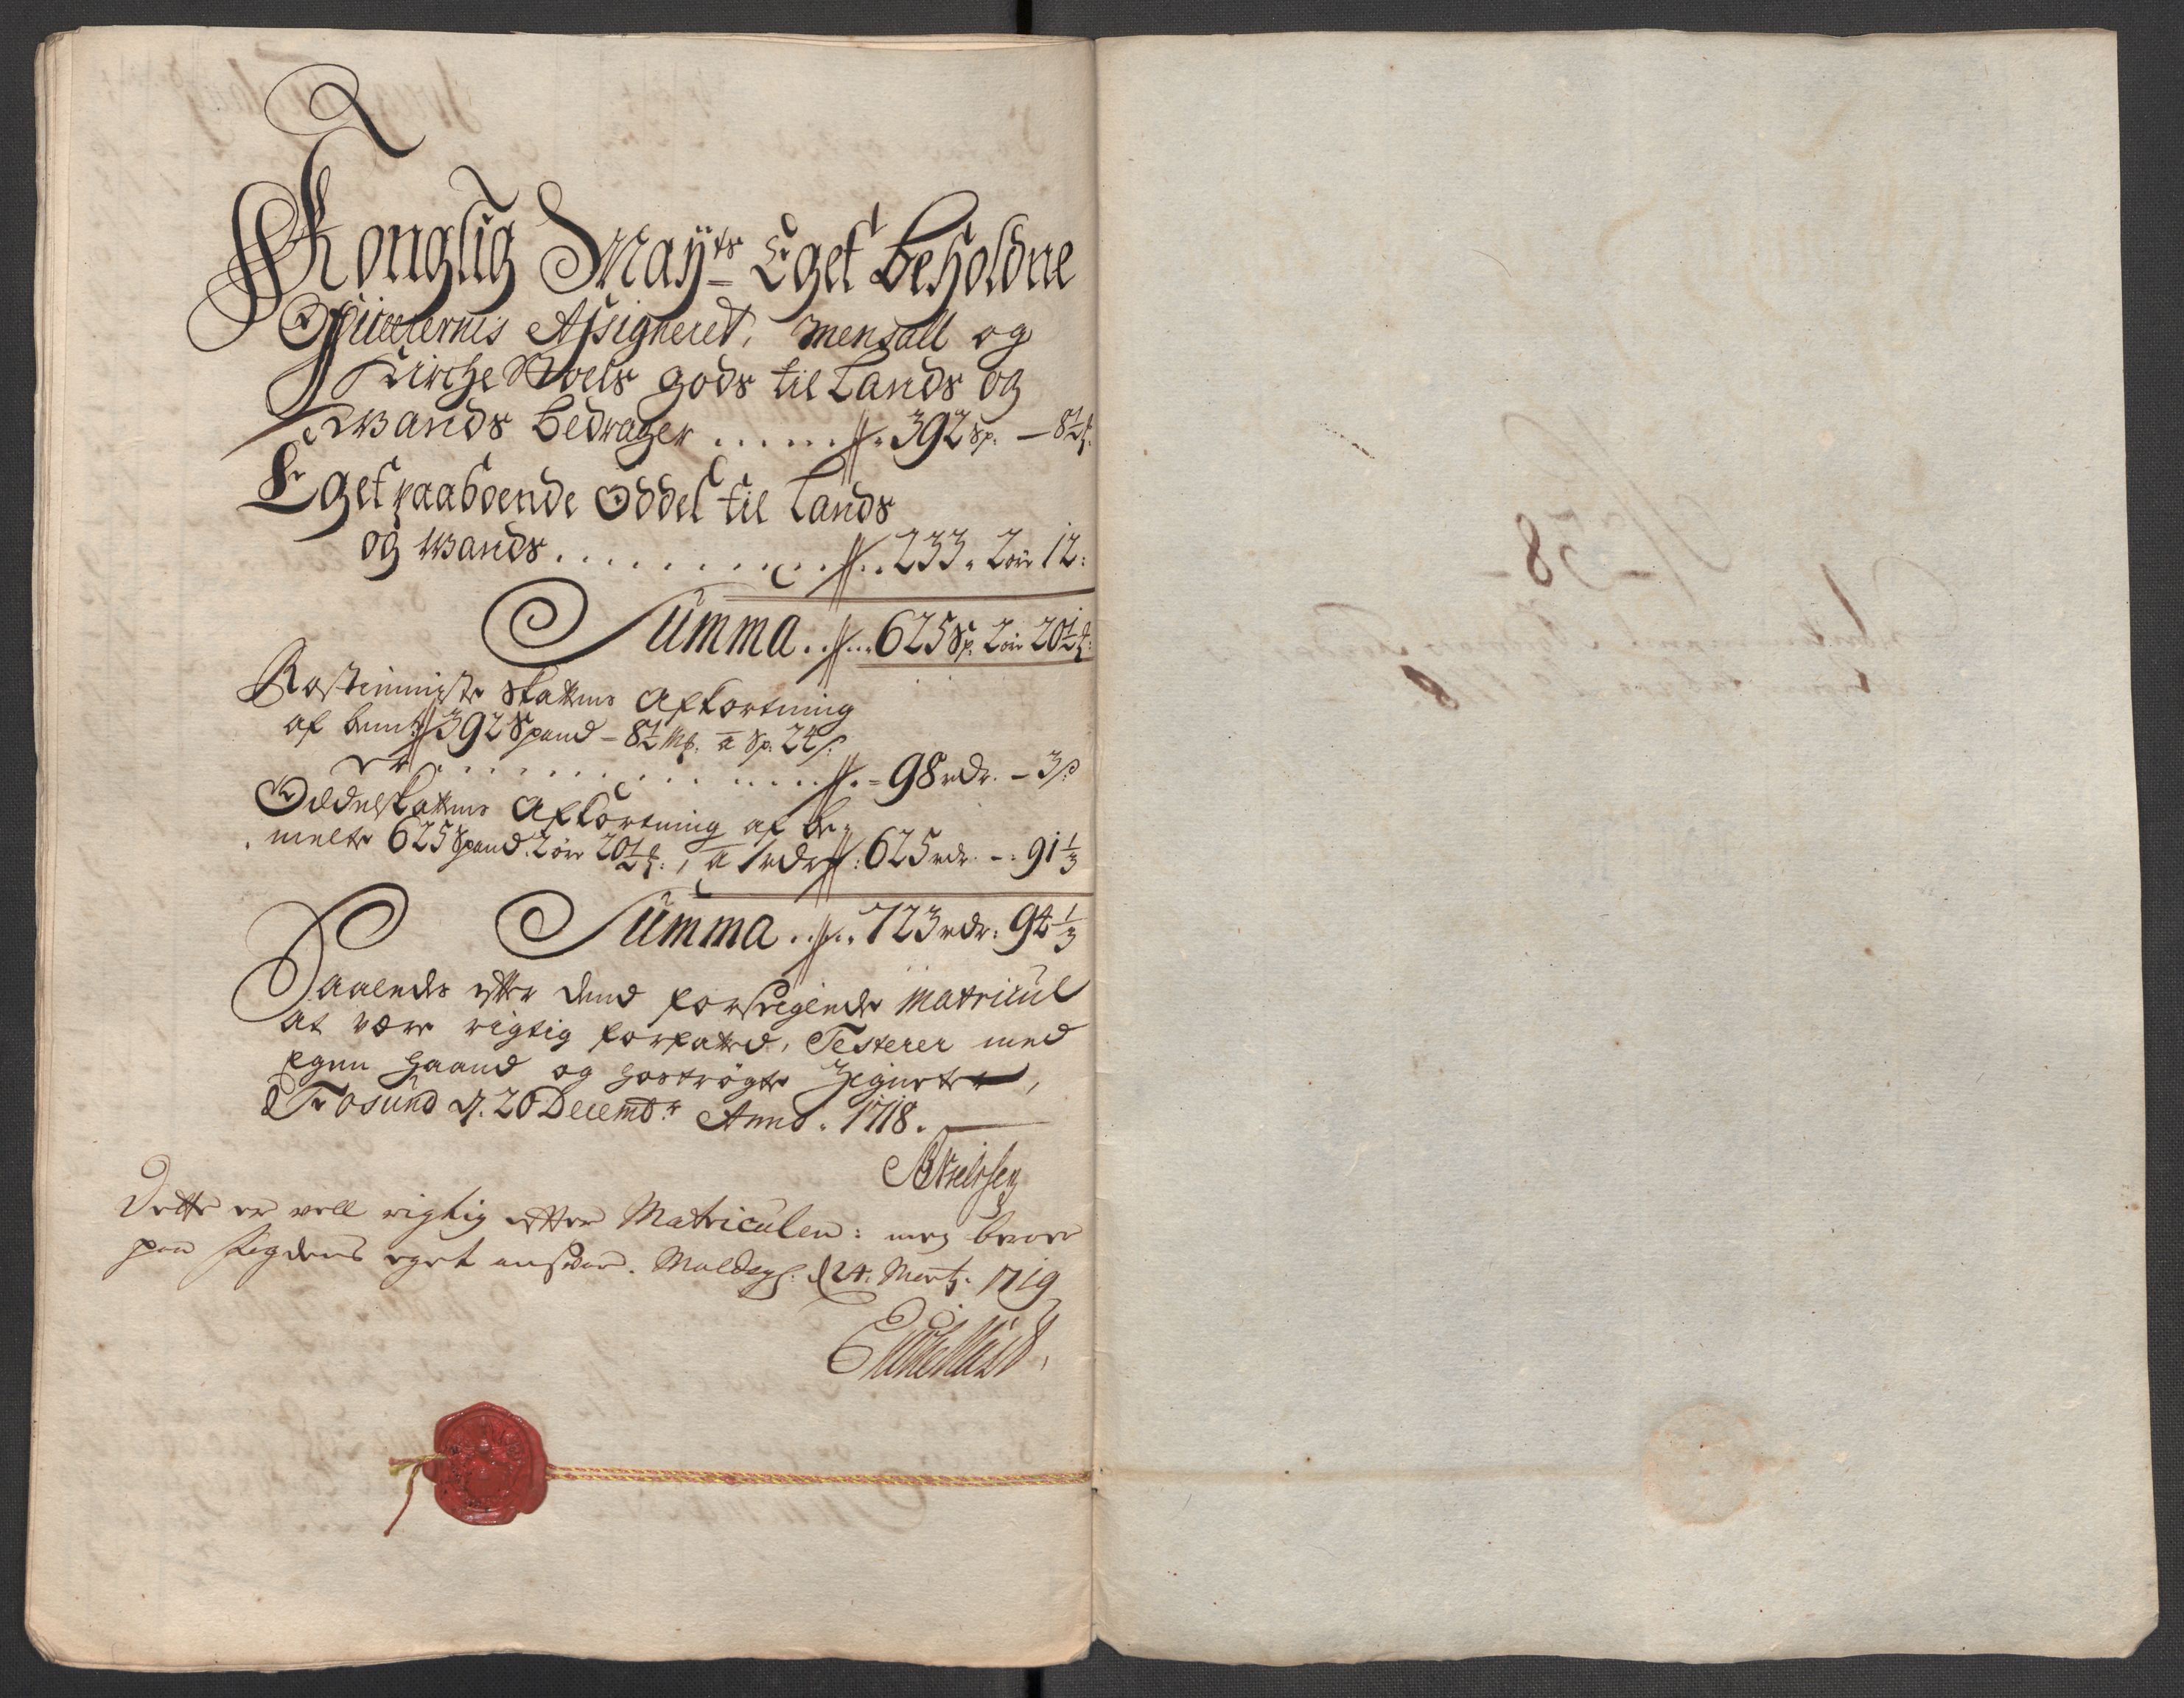 Konglig Maÿts Eget Beholdne
Officerernis Assigneret, Mensall og
Kirche Boels gods til Lands og
Wands Bedrager ...... 392 Sp. — 8½
Eget paaboende Oddel til Lands
og Wands ............ 233 " 2 ør 12:
Summa ..... 625 Sp. 2 ør 20½
Rostienniste Skattens Afkortning
af bem: 392 Spand – 8½ Mk. a Sp. 24 s:
er ............ 98 rdr. – 3 s
Oddelskattens Afkortning af be-
melte 625 Spand. 2 ør 20½, a 1 rdr : 625 rdr. – : 91⅓
Summa ..... 723 rdr: 94⅓
Saaledes efter dend forseiglende Matricul
at være rigtig forfatted, Testerer med
egen Haand og hostrøgte Zignete,
Fosund d. 20 Decembr Anno. 1718.
Nielssen
Dette er vell rigtig efter Matriculen: men beroer
paa fogdens eget ansvar. Moldegr. d 24. Martj. 1719
No 58